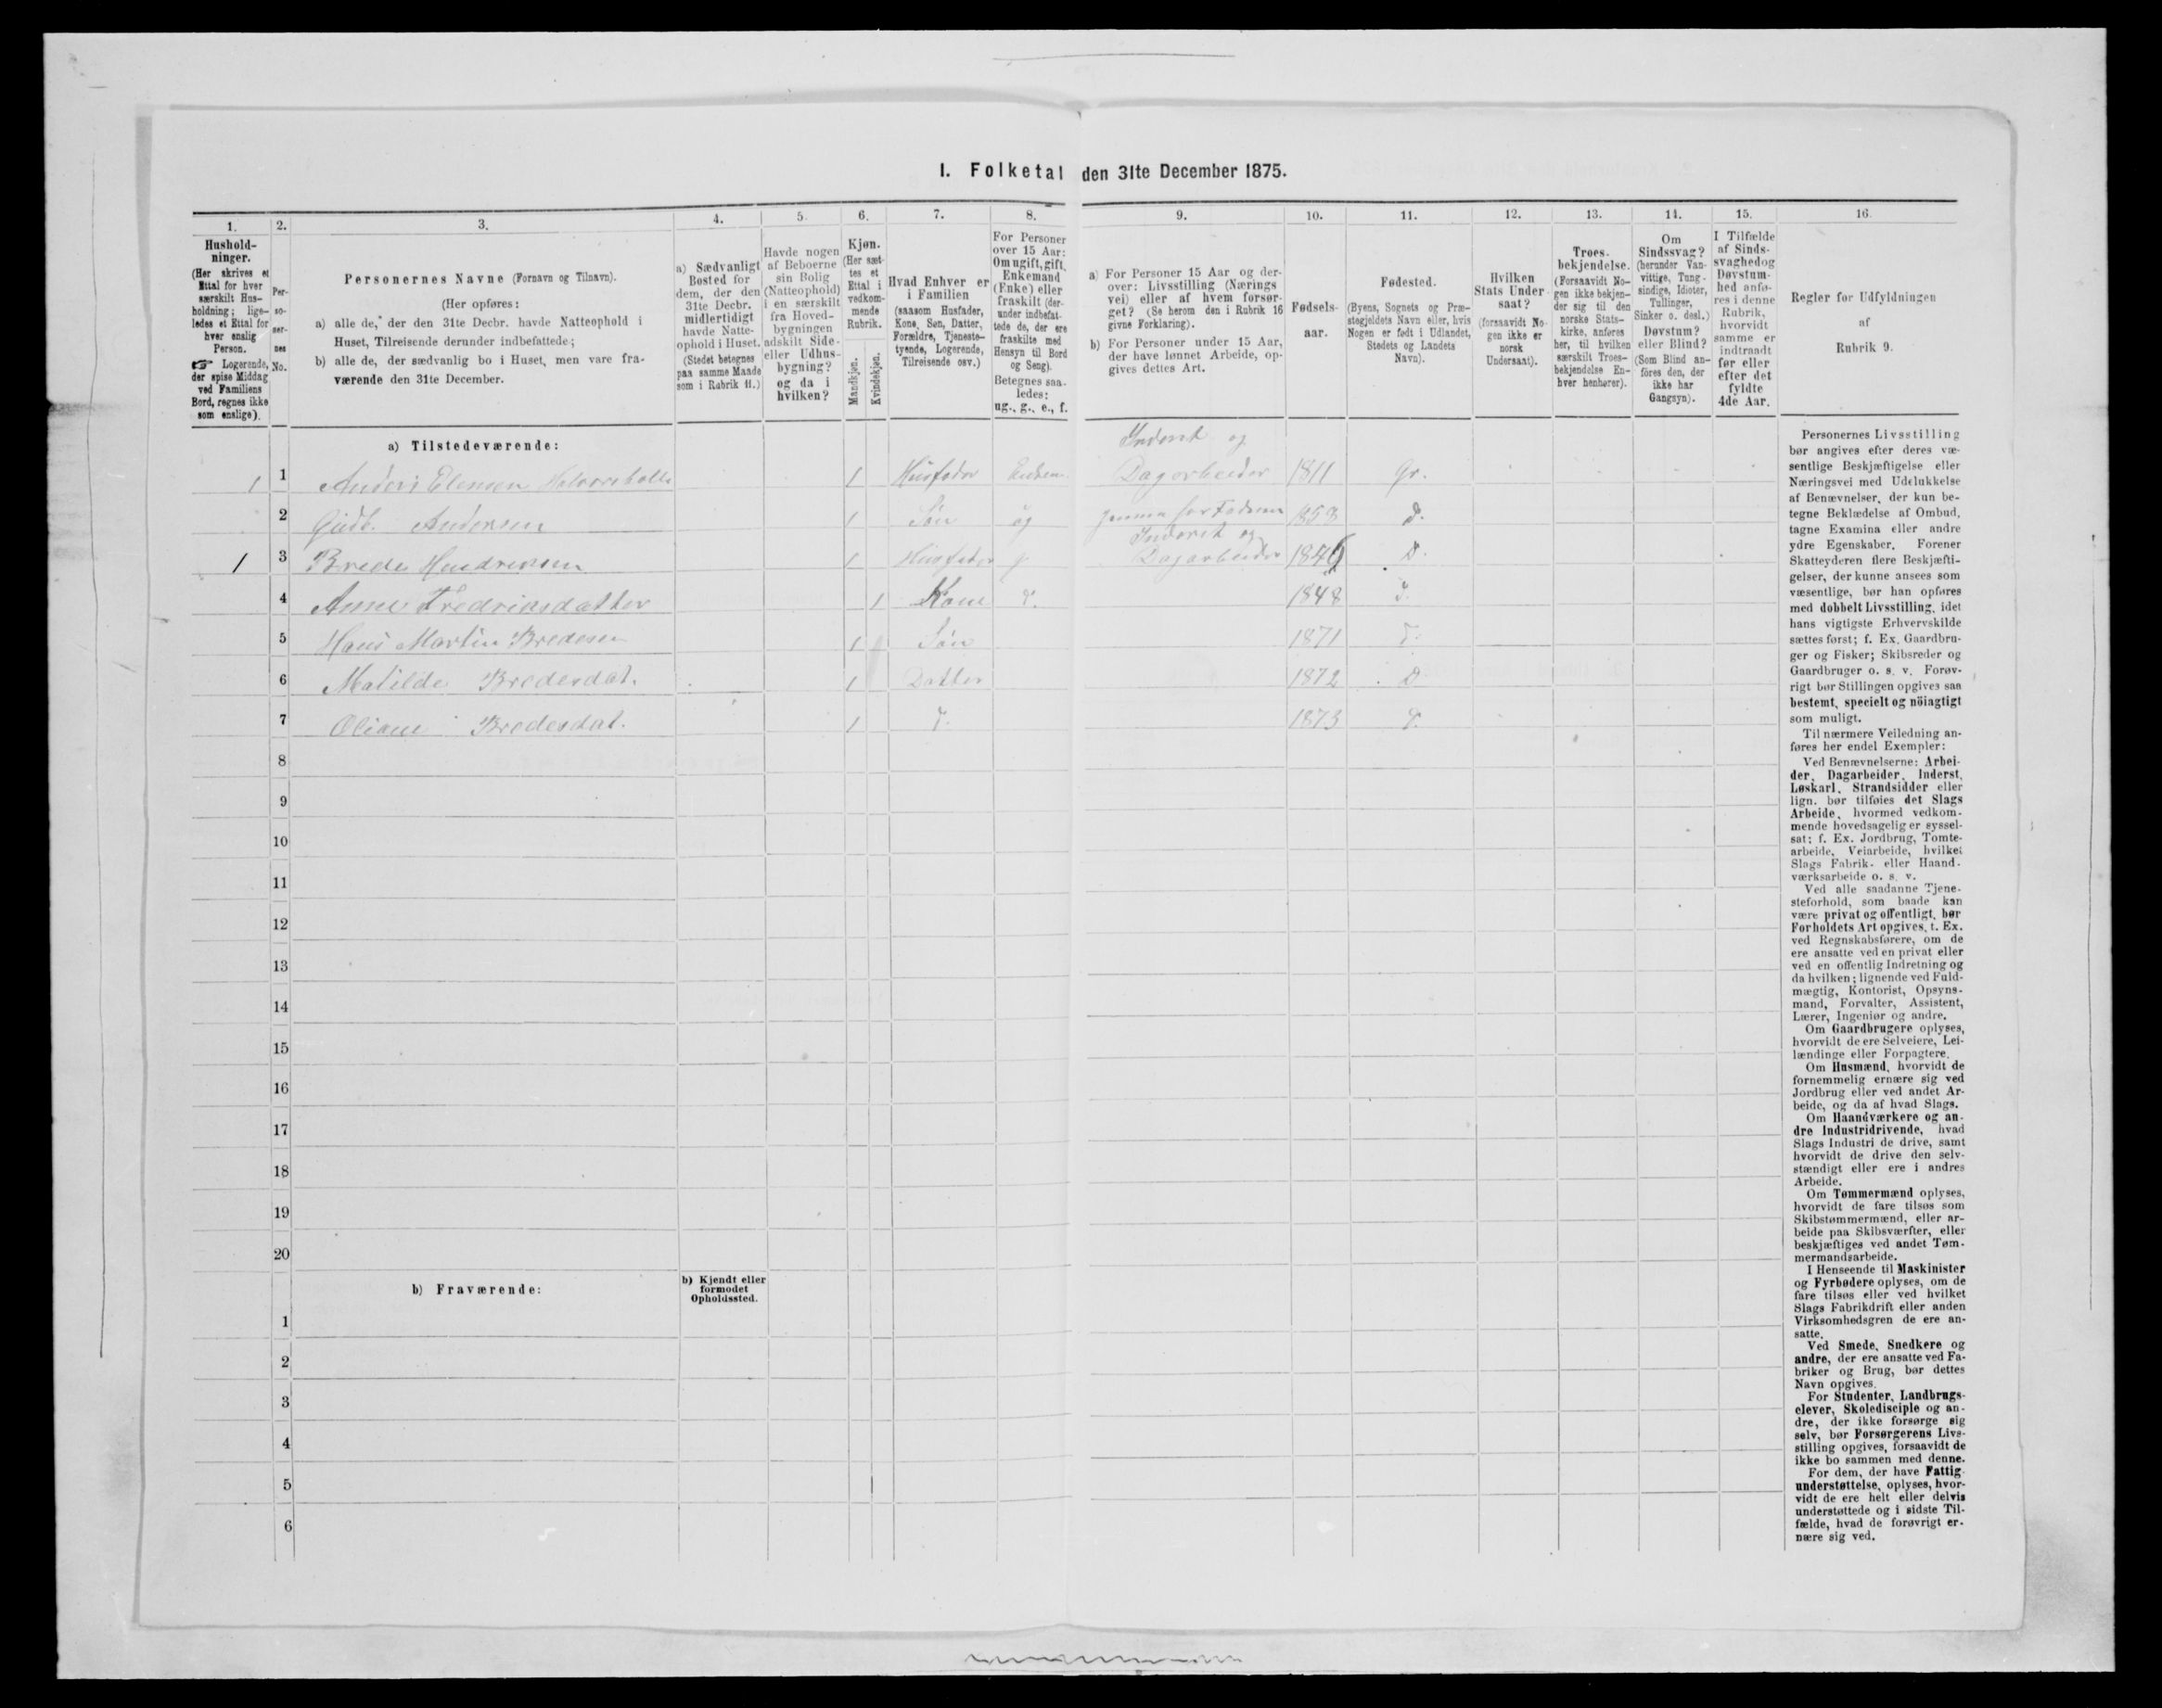 I. Folketal den 31te December 1875.
1. 2. 3. 4. 5. 6. 7. 8. 9. 10. 11. 12. 13. 14. 15. 16.
Hushold-
ninger.
(Her skrives et
Ettal for hver
særskilt Hus-
holdning; lige-
ledes et Ettal for
hver enslig
Person.
☞ Logerende,
der spise Middag
ved Familiens
Bord, regnes ikke
som enslige).
Per-
so-
ner-
nes
No.
Personernes Navne (Fornavn og Tilnavn).
(Her opføres:
a) alle de, der den 31te Decbr. havde Natteophold i
Huset, Tilreisende derunder indbefattede;
b) alle de, der sædvanlig bo i Huset, men vare fra-
værende den 31te December.
a) Sædvanligt
Bosted for
dem, der den
31te Decbr.
midlertidigt
havde Natte-
ophold i Huset.
(Stedet betegnes
paa samme Maade
som i Rubrik 11.)
Havde nogen
af Beboerne
sin Bolig
(Natteophold)
i en særskilt
fra Hoved-
bygningen
adskilt Side-
eller Udhus-
bygning?
og da i
hvilken?
Kjøn.
(Her sæt-
tes et
Ettal i
vedkom-
mende
Rubrik.
Mandkjøn.
Kvindekjøn.
Hvad Enhver er
i Familien
(saasom Husfader,
Kone, Søn, Datter,
Forældre, Tjeneste-
tyende, Logerende,
Tilreisende osv.)
For Personer
over 15 Aar:
Om ugift, gift,
Enkemand
(Enke) eller
fraskilt (der-
under indbefat-
tede de, der ere
fraskilte med
Hensyn til Bord
og Seng).
Betegnes saa-
ledes:
ug., g., e., f.
a) For Personer 15 Aar og der-
over: Livsstilling (Nærings
vei) eller af hvem forsør-
get? (Se herom den i Rubrik 16
givne Forklaring).
b) For Personer under 15 Aar,
der have lønnet Arbeide, op-
gives dettes Art.
Fødsels-
aar.
Fødested.
(Byens, Sognets og Præ-
stegjeldets Navn eller, hvis
Nogen er født i Udlandet,
Stedets og Landets
Navn).
Hvilken
Stats Under-
saat?
(forsaavidt No-
gen ikke er
norsk
Undersaat).
Troes-
bekjendelse.
(Forsaavidt No-
gen ikke bekjen-
der sig til den
norske Stats-
kirke, anføres
her, til hvilken
særskilt Troes-
bekjendelse En-
hver henhører).
Om
Sindssvag?
(herunder Van-
vittige, Tung-
sindige, Idioter,
Tullinger,
Sinker o. desl.)
Døvstum?
eller Blind?
(Som Blind an-
föres den, der
ikke har
Gangsyn).
I Tilfælde
af Sinds-
svaghed og
Døvstum-
hed anfø-
res i denne
Rubrik,
hvorvidt
samme er
indtraadt
før eller
efter det
fyldte
4de Aar.
Regler for Udfyldningen
af
Rubrik 9.
a) Tilstedeværende:
Inderst og
1 1 Anders Elensen 1 Husfader Dagarbeider 1811 Gr.
2 Gudb. Andersen 1 Søn ug 1858 D.
Inderst og
1 3 Brede Hendriksen 1 Husfader g Dagarbeider 1846 D.
4 Anne Fredriksdatter 1 Kone D. 1848 D.
5 Hans Martin Bredesen 1 Søn 1871 D.
6 Matilde Bredesdat. 1 Datter 1872 D
7 Oliane Bredesdat. 1 D. 1873 D.
8
9
10
11
12
13
14
15
16
17
18
19
20
b) Fraværende:
b) Kjendt eller
formodet
Opholdssted.
1
2
3
4
5
6
Personernes Livsstilling
bør angives efter deres væ-
sentlige Beskjæftigelse eller
Næringsvei med Udelukkelse
af Benævnelser, der kun be-
tegne Beklædelse af Ombud,
tagne Examina eller andre
ydre Egenskaber. Forener
Skatteyderen flere Beskjæfti-
gelser, der kunne ansees som
væsentlige, bør han opføres
med dobbelt Livsstilling, idet
hans vigtigste Erhvervskilde
sættes først; f. Ex. Gaardbru-
ger og Fisker; Skibsreder og
Gaardbruger o. s. v. Forøv-
rigt bør Stillingen opgives saa
bestemt, specielt og nöiagtigt
som muligt.
Til nærmere Veiledning an-
føres her endel Exempler:
Ved Benævnelserne: Arbei-
der, Dagarbeider, Inderst,
Løskarl, Strandsidder eller
lign. bør tilføies det Slags
Arbeide, hvormed vedkom-
mende hovedsagelig er syssel-
sat; f. Ex. Jordbrug, Tomte-
arbeide, Veiarbeide, hvilket
Slags Fabrik- eller Haand-
værksarbeide o. s. v.
Ved alle saadanne Tjene-
steforhold, som baade kan
være privat og offentligt, bør
Forholdets Art opgives, t. Ex.
ved Regnskabsførere, om de
ere ansatte ved en privat eller
ved en offentlig Indretning og
da hvilken; lignende ved Fuld-
mægtig, Kontorist, Opsyns-
mand, Forvalter, Assistent,
Lærer, Ingeniør og andre.
Om Gaardbrugere oplyses,
hvorvidt de ere Selveiere, Lei-
lændinge eller Forpagtere.
Om Husmænd, hvorvidt de
fornemmelig ernære sig ved
Jordbrug eller ved andet Ar-
beide, og da af hvad Slags.
Om Haandværkere og an-
dre Industridrivende, hvad
Slags Industri de drive, samt
hvorvidt de drive den selv-
stændigt eller ere i andres
Arbeide.
Om Tømmermænd oplyses,
hvorvidt de fare tilsøs som
Skibstømmermænd, eller ar-
beide paa Skibsværfter, eller
beskjæftiges ved andet Tøm-
mermandsarbeide.
I Henseende til Maskinister
og Fyrbødere oplyses, om de
fare tilsøs eller ved hvilket
Slags Fabrikdrift eller anden
Virksomhedsgren de ere an-
satte.
Ved Smede, Snedkere og
andre, der ere ansatte ved Fa-
briker og Brug, bør dettes
Navn opgives.
For Studenter, Landbrugs-
elever, Skoledisciple og an-
dre, der ikke forsørge sig
selv, bør Forsørgerens Livs-
stilling opgives, forsaavidt de
ikke bo sammen med denne.
For dem, der have Fattig-
understøttelse, oplyses, hvor-
vidt de ere helt eller delvis
understøttede og i sidste Til-
fælde, hvad de forøvrigt er-
nære sig ved.